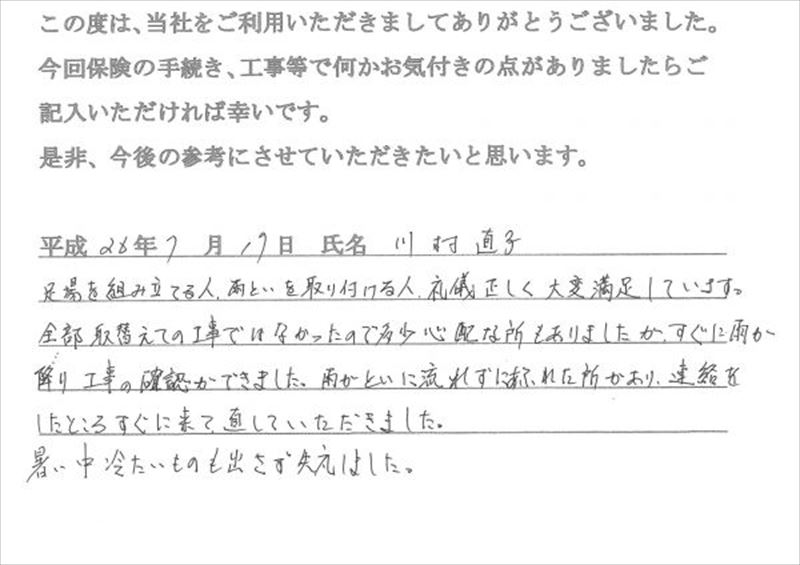 この度は、当社をご利用いただきましてありがとうございました。
今回保険の手続き、工事等で何かお気付きの点がありましたらご
記入いただければ幸いです。
是非、今後の参考にさせていただきたいと思います。
平成 26年 7 月 17日 氏名 川村直子
足場を組み立てる人、雨といを取り付ける人、礼儀正しく大変満足しています。
全部取替えての工事ではなかったので多少心配な所もありましたが、すぐに雨が
降り工事の確認ができました。雨がといに流れずにあふれた所があり、連絡を
したところすぐに来て、直していただきました。
暑い中冷たいものも出さず失礼しました。